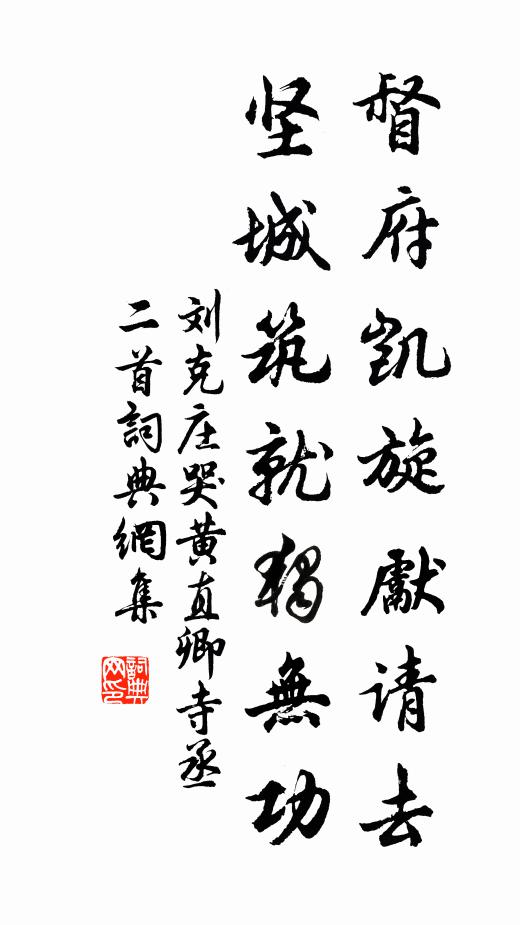 督府凯旋献请去
坚城筑就独無功
刘克庄哭黄直卿寺丞
二首詞典網集
詞典网印